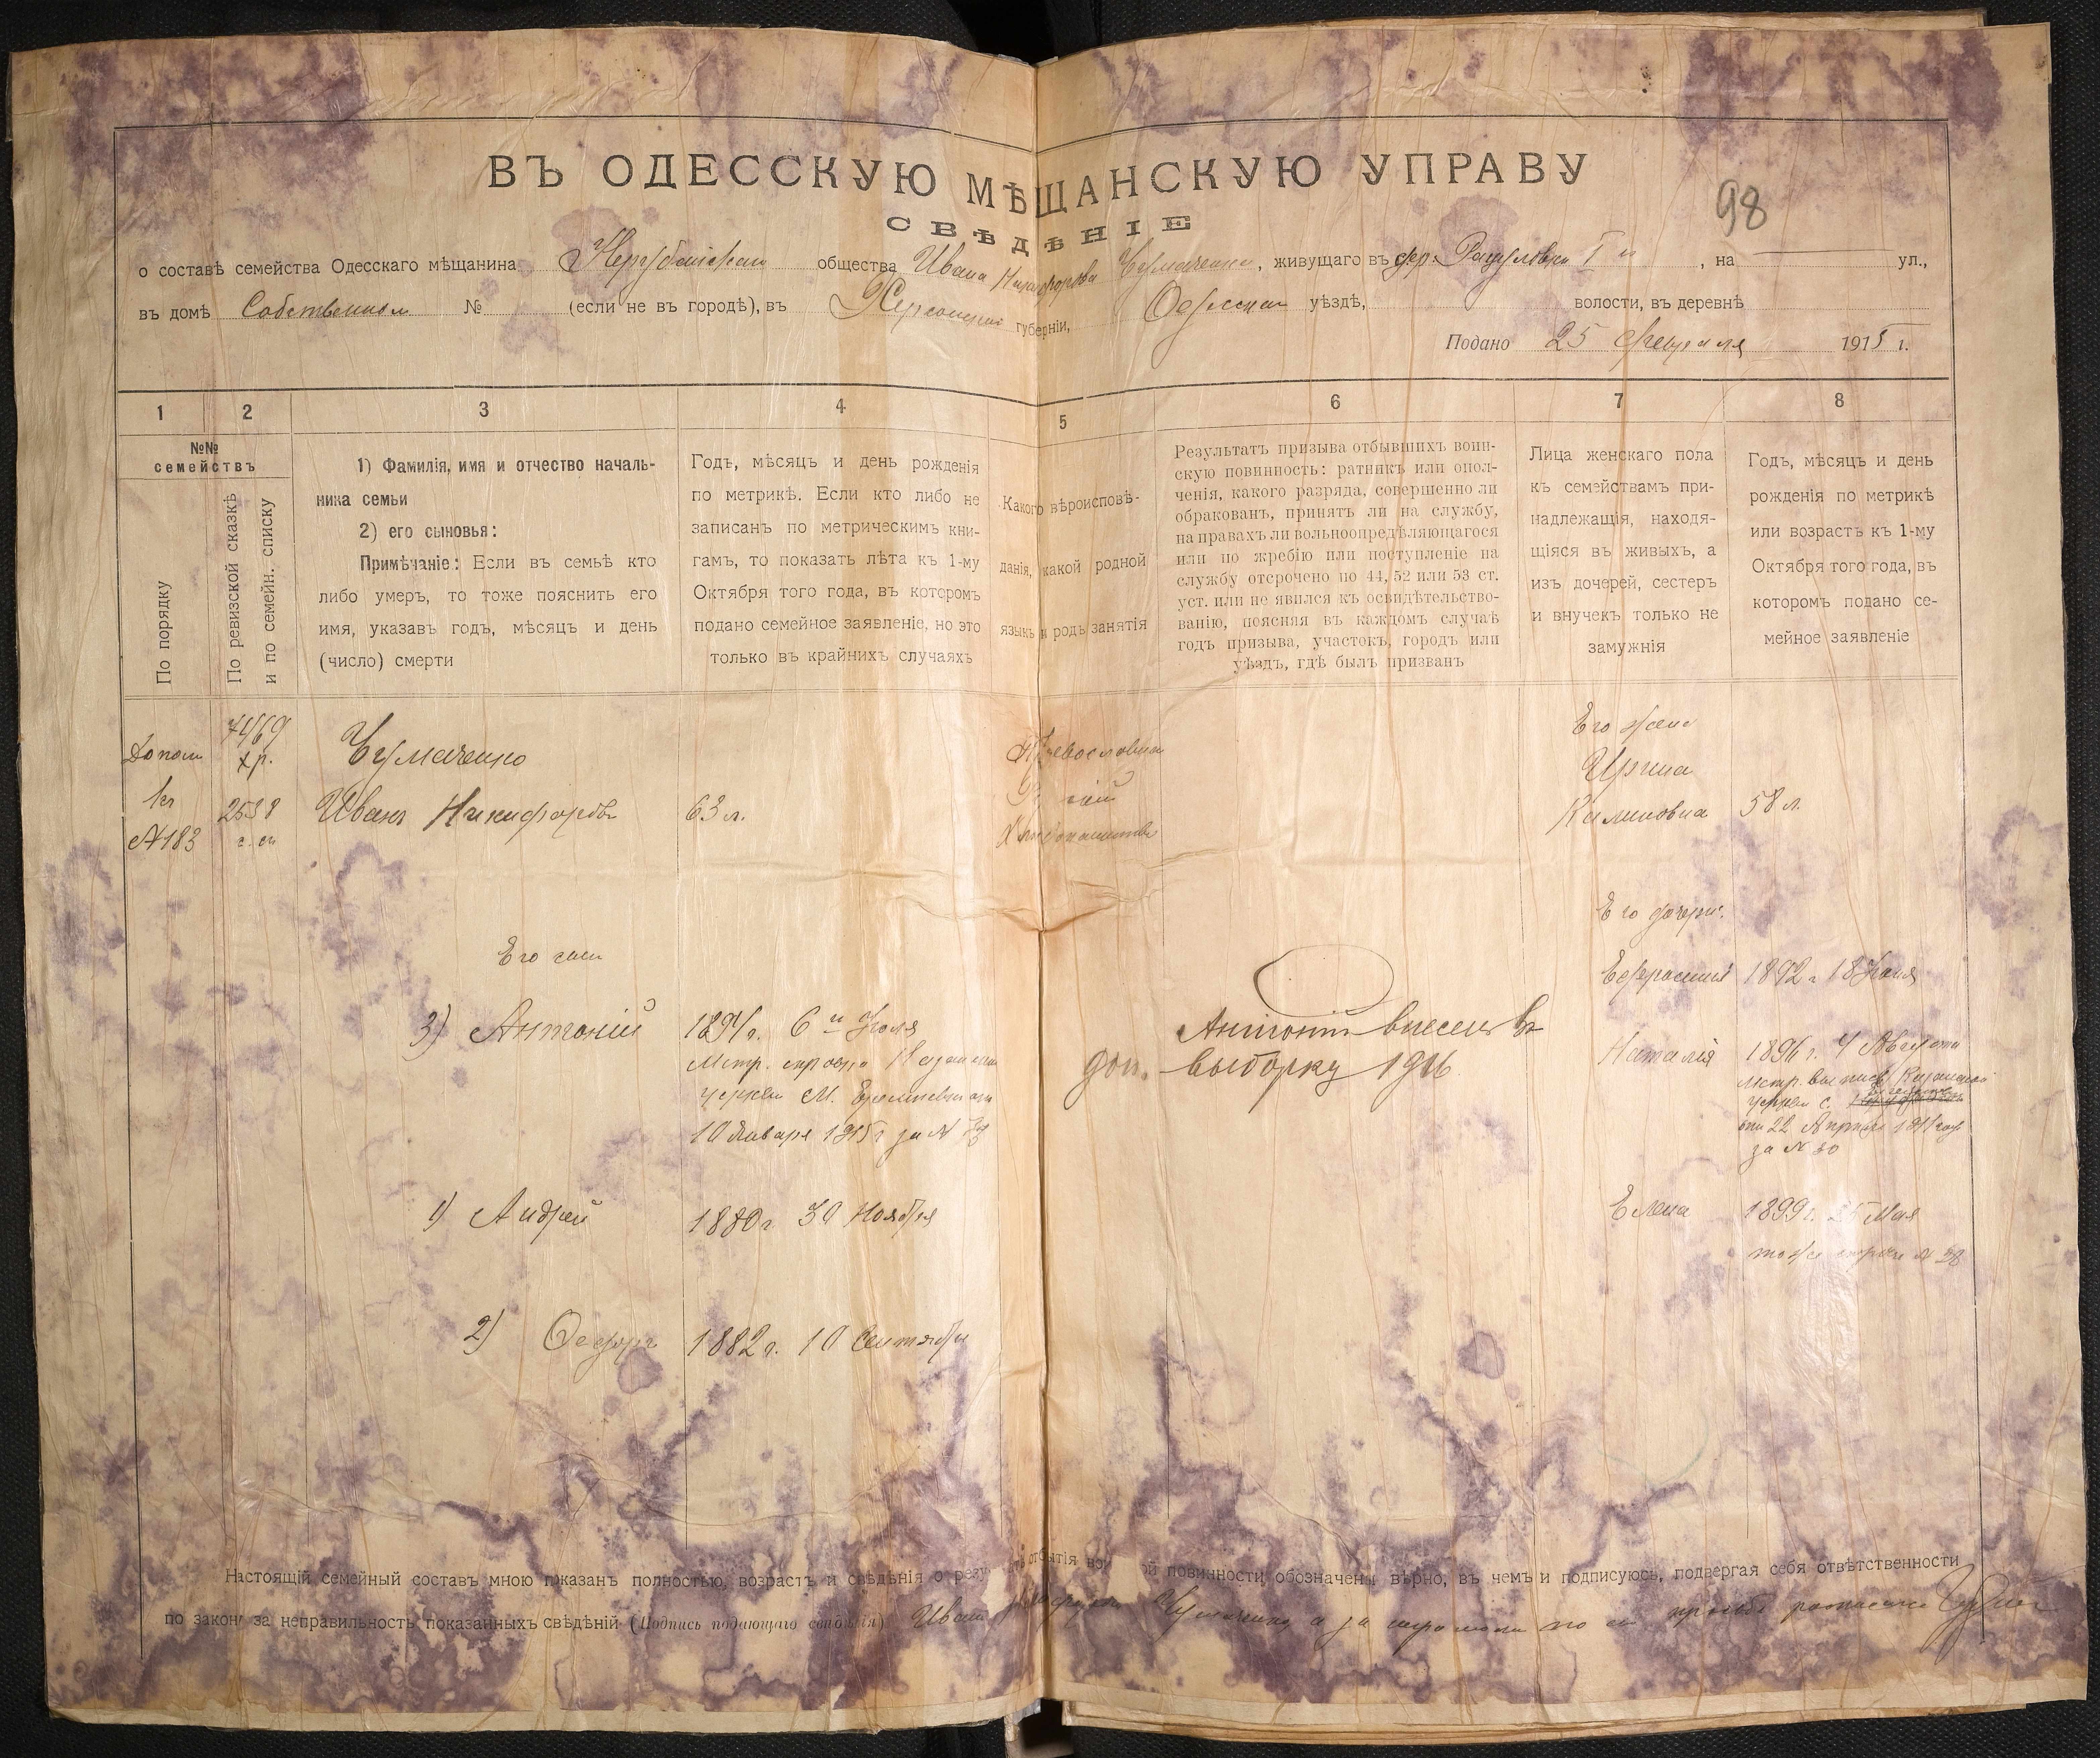 ВЪ ОДЕССКУЮ МѢЩАНСКУЮ УПРАВУ
98
СВѢДѢНІЕ
о составѣ семейства Одесскаго мѣщанина общества Ивана Никифорова Чумаченко, живущаго въ дер. I й, на ул.,
въ домѣ Собственном № (если не въ городѣ), въ Херсонской губерніи, Одесском уѣздѣ, волости, въ деревнѣ
Подано 25 февраля 1915 г.
1 2 3 4 5 6 7 8
№№
семействъ
По порядку
По ревизской сказкѣ
и по семейн. списку
1) Фамилія, имя и отчество началь-
ника семьи
2) его сыновья:
Примѣчаніе: Если въ семьѣ кто
либо умеръ, то тоже пояснить его
имя, указавъ годъ, мѣсяцъ и день
(число) смерти
Годъ, мѣсяцъ и день рожденія
по метрикѣ. Если кто либо не
записанъ по метрическимъ кни-
гамъ, то показать лѣта къ 1-му
Октября того года, въ которомъ
подано семейное заявленіе, но это
только въ крайнихъ случаяхъ
Какого вѣроисповѣ-
данія, какой родной
языкъ и родъ занятія
Результатъ призыва отбывшихъ воин-
скую повинность: ратникъ или опол-
ченія, какого разряда, совершенно ли
обракованъ, принятъ ли на службу,
на правахъ ли вольноопредѣляющагося
или по жребію или поступленіе на
службу отсрочено по 44, 52 или 53 ст.
уст. или не явился къ освидѣтельство-
ванію, поясняя въ каждомъ случаѣ
годъ призыва, участокъ, городъ или
уѣздъ, гдѣ былъ призванъ
Лица женскаго пола
къ семействамъ при-
надлежащія, находя-
щіяся въ живыхъ, а
изъ дочерей, сестеръ
и внучекъ только не
замужнія
Годъ, мѣсяцъ и день
рожденія по метрикѣ
или возрастъ къ 1-му
Октября того года, въ
которомъ подано се-
мейное заявленіе
Допол
къ
№183
7469
хр.
2538
Чумаченко
Иванъ Никифоровъ 63 л.
Православный
Хлебопашество
Его жена
Ирина
Калиновна 58 л.
Его сын
3) Антоній 1894 г. 6 го Іюля
10 Января 1915 г за №
1) Андрей 1880 г. 30 Ноября
2) Ѳедоръ 1882 г. 10 Сентября
Антоній внесенъ въ
доп. выборку 1916
Его дочери:
Ефросинія 1892 г 18
Наталія 1896 г. 4 Августа
Метр. выпись Казанской
церкви с.
22 Апреля
за № 30
Елена 1899 г. 25 Мая
тоже № 38
Настоящій семейный составъ мною показанъ полностью, возрастъ и свѣдѣнія о отбытія повинности обозначены вѣрно, въ чемъ и подписуюсь, подвергая себя отвѣтственности
по закону за неправильность показанныхъ свѣдѣній (Подпись подающаго свѣдѣнія) Иван Никифоров Чумаченко а за по его просьбе росписался